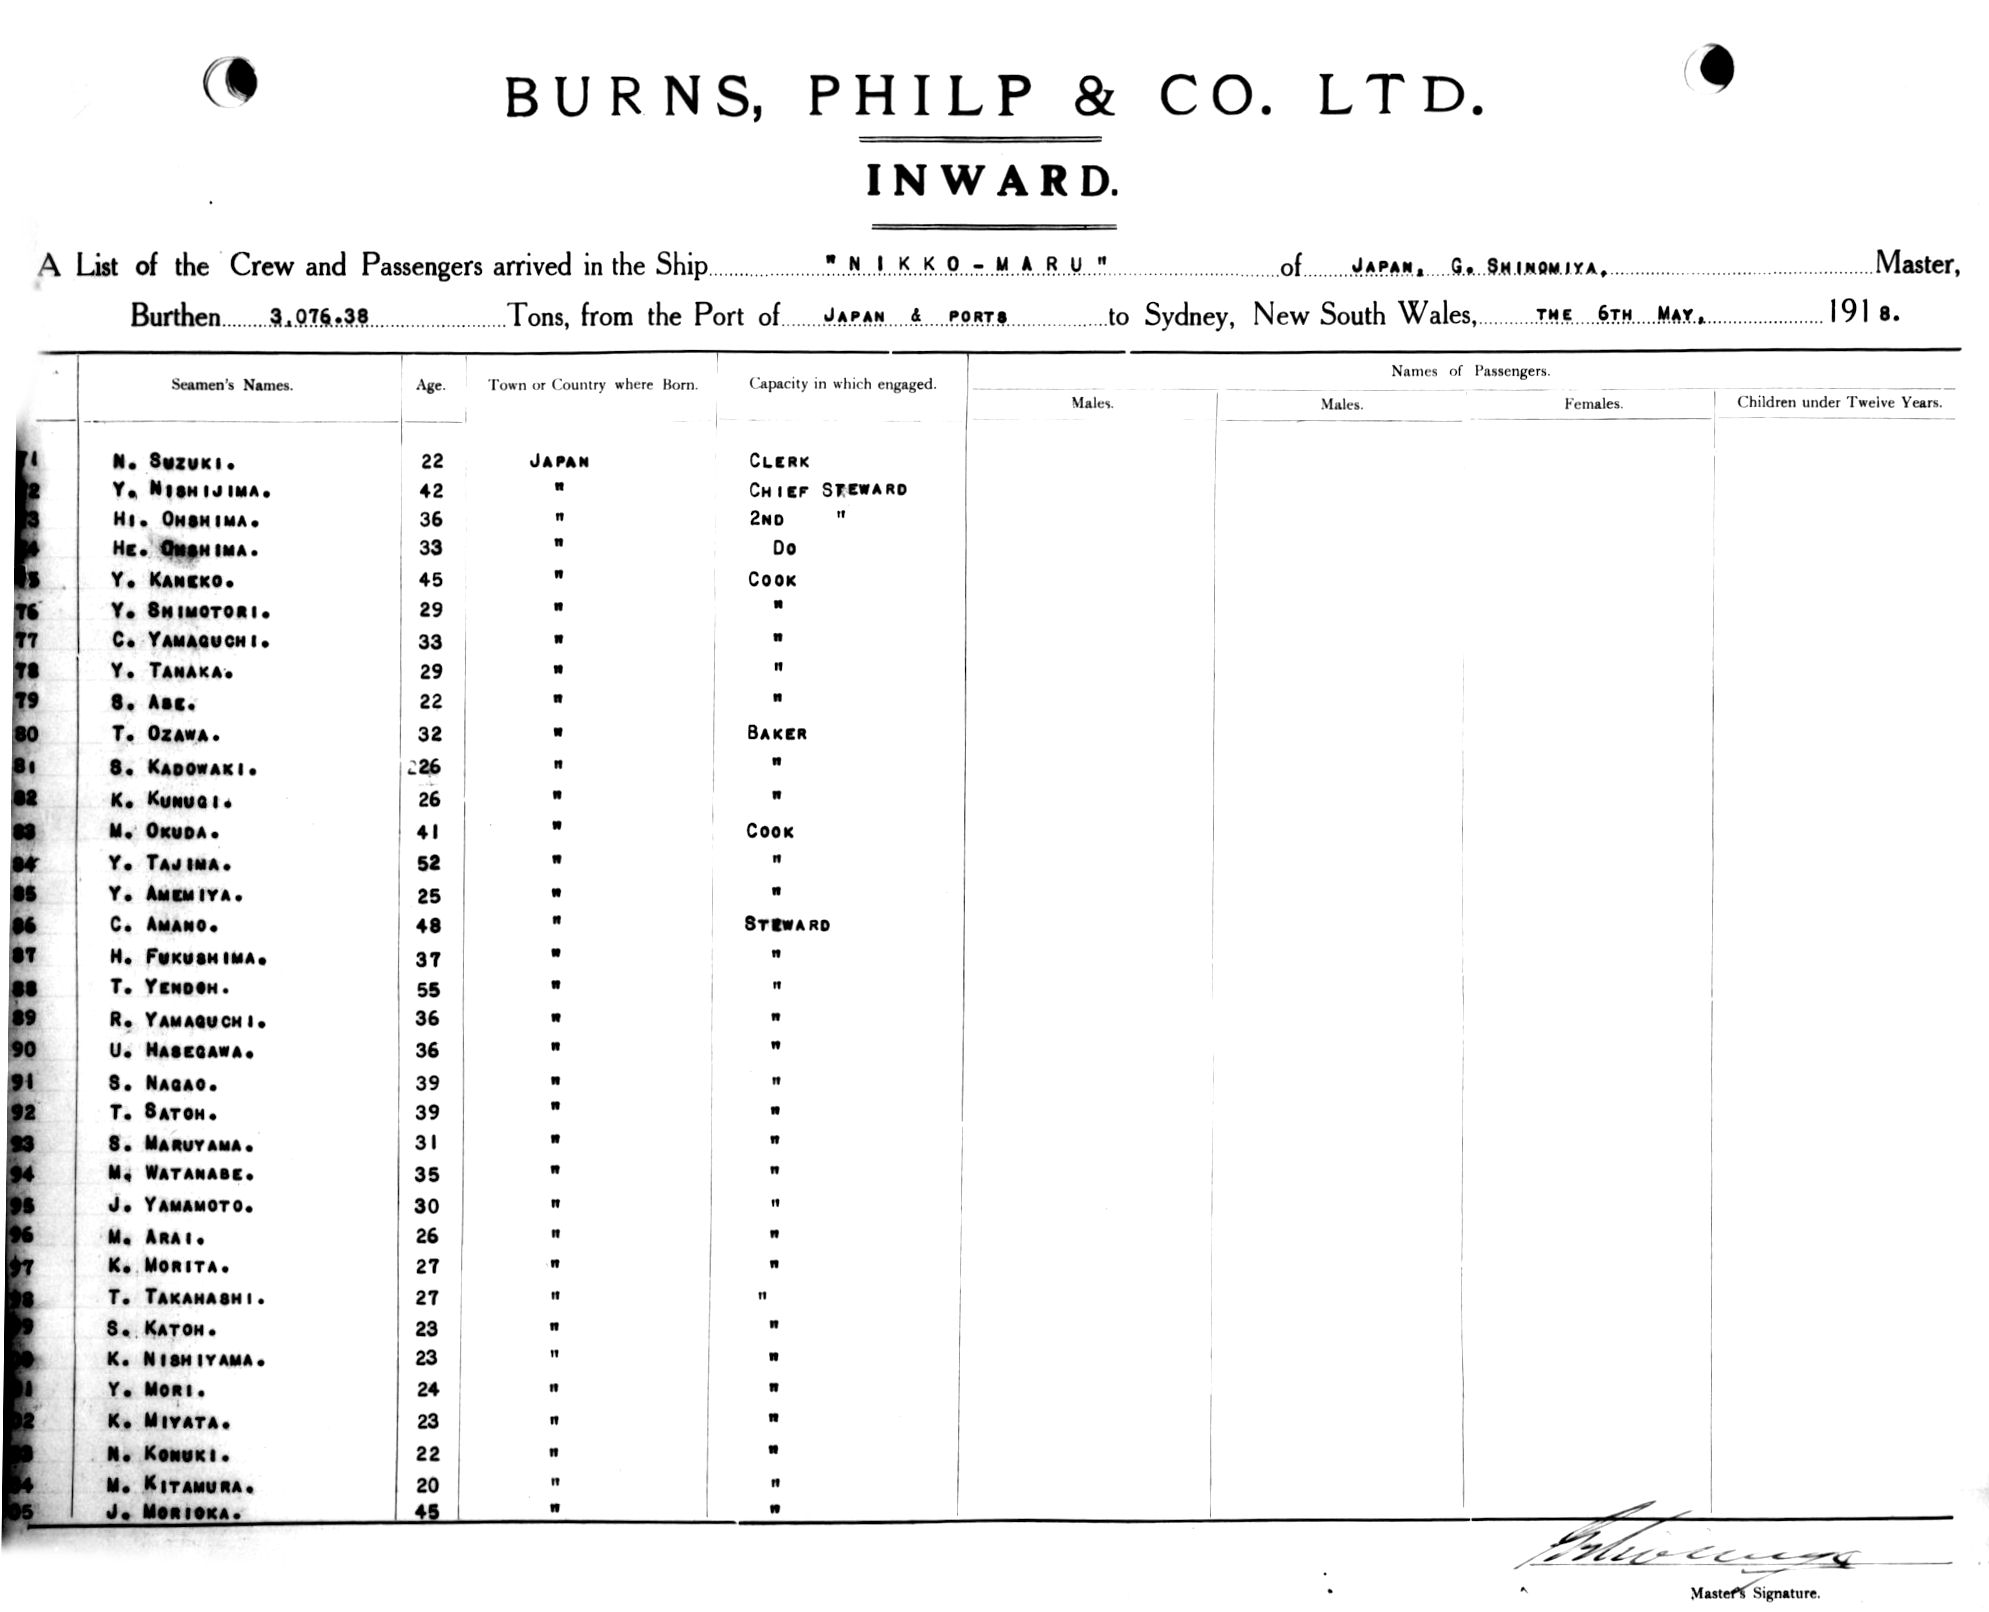 BURNS, PHILP & CO. LTD.
INWARD.
A List of the Crew and Passengers arrived in the Ship "NIKKO-MARU" of JAPAN, G. SHINOMIYA, Master,
Burthen 3,076.38 Tons, from the Port of JAPAN & PORTS to Sydney, New South Wales, THE 6TH MAY, 1918.
Seamen's Names. Age. Town or Country where Born. Capacity in which engaged. Names of Passengers.
Males. Males. Females. Children under Twelve Years.
71 N. SUZUKI. 22 JAPAN CLERK
72 Y. NISHIJIMA. 42 " CHIEF STEWARD
73 HI. OHSHIMA. 36 " 2ND "
74 HE. OHSHIMA. 33 " DO
75 Y. KANEKO. 45 " COOK
76 Y. SHIMOTORI. 29 " "
77 C. YAMAGUCHI. 33 " "
78 Y. TANAKA. 29 " "
79 S. ABE. 22 " "
80 T. OZAWA. 32 " BAKER
81 S. KADOWAKI. 26 " "
82 K. KUNUGI. 26 " "
83 M. OKUDA. 41 " COOK
84 Y. TAJIMA. 52 " "
85 Y. AMEMIYA. 25 " "
86 C. AMANO. 48 " STEWARD
87 H. FUKUSHIMA. 37 " "
88 T. YENDOH. 55 " "
89 R. YAMAGUCHI. 36 " "
90 U. HASEGAWA. 36 " "
91 S. NAGAO. 39 " "
92 T. SATOH. 39 " "
93 S. MARUYAMA. 31 " "
94 M. WATANABE. 35 " "
95 J. YAMAMOTO. 30 " "
96 M. ARAI. 26 " "
97 K. MORITA. 27 " "
98 T. TAKAHASHI. 27 " "
9 S. KATOH. 23 " "
K. NISHIYAMA. 23 " "
1 Y. MORI. 24 " "
2 K. MIYATA. 23 " "
3 N. KONUKI. 22 " "
4 M. KITAMURA. 20 " "
5 J. MORIOKA. 45 " "
Master's Signature.